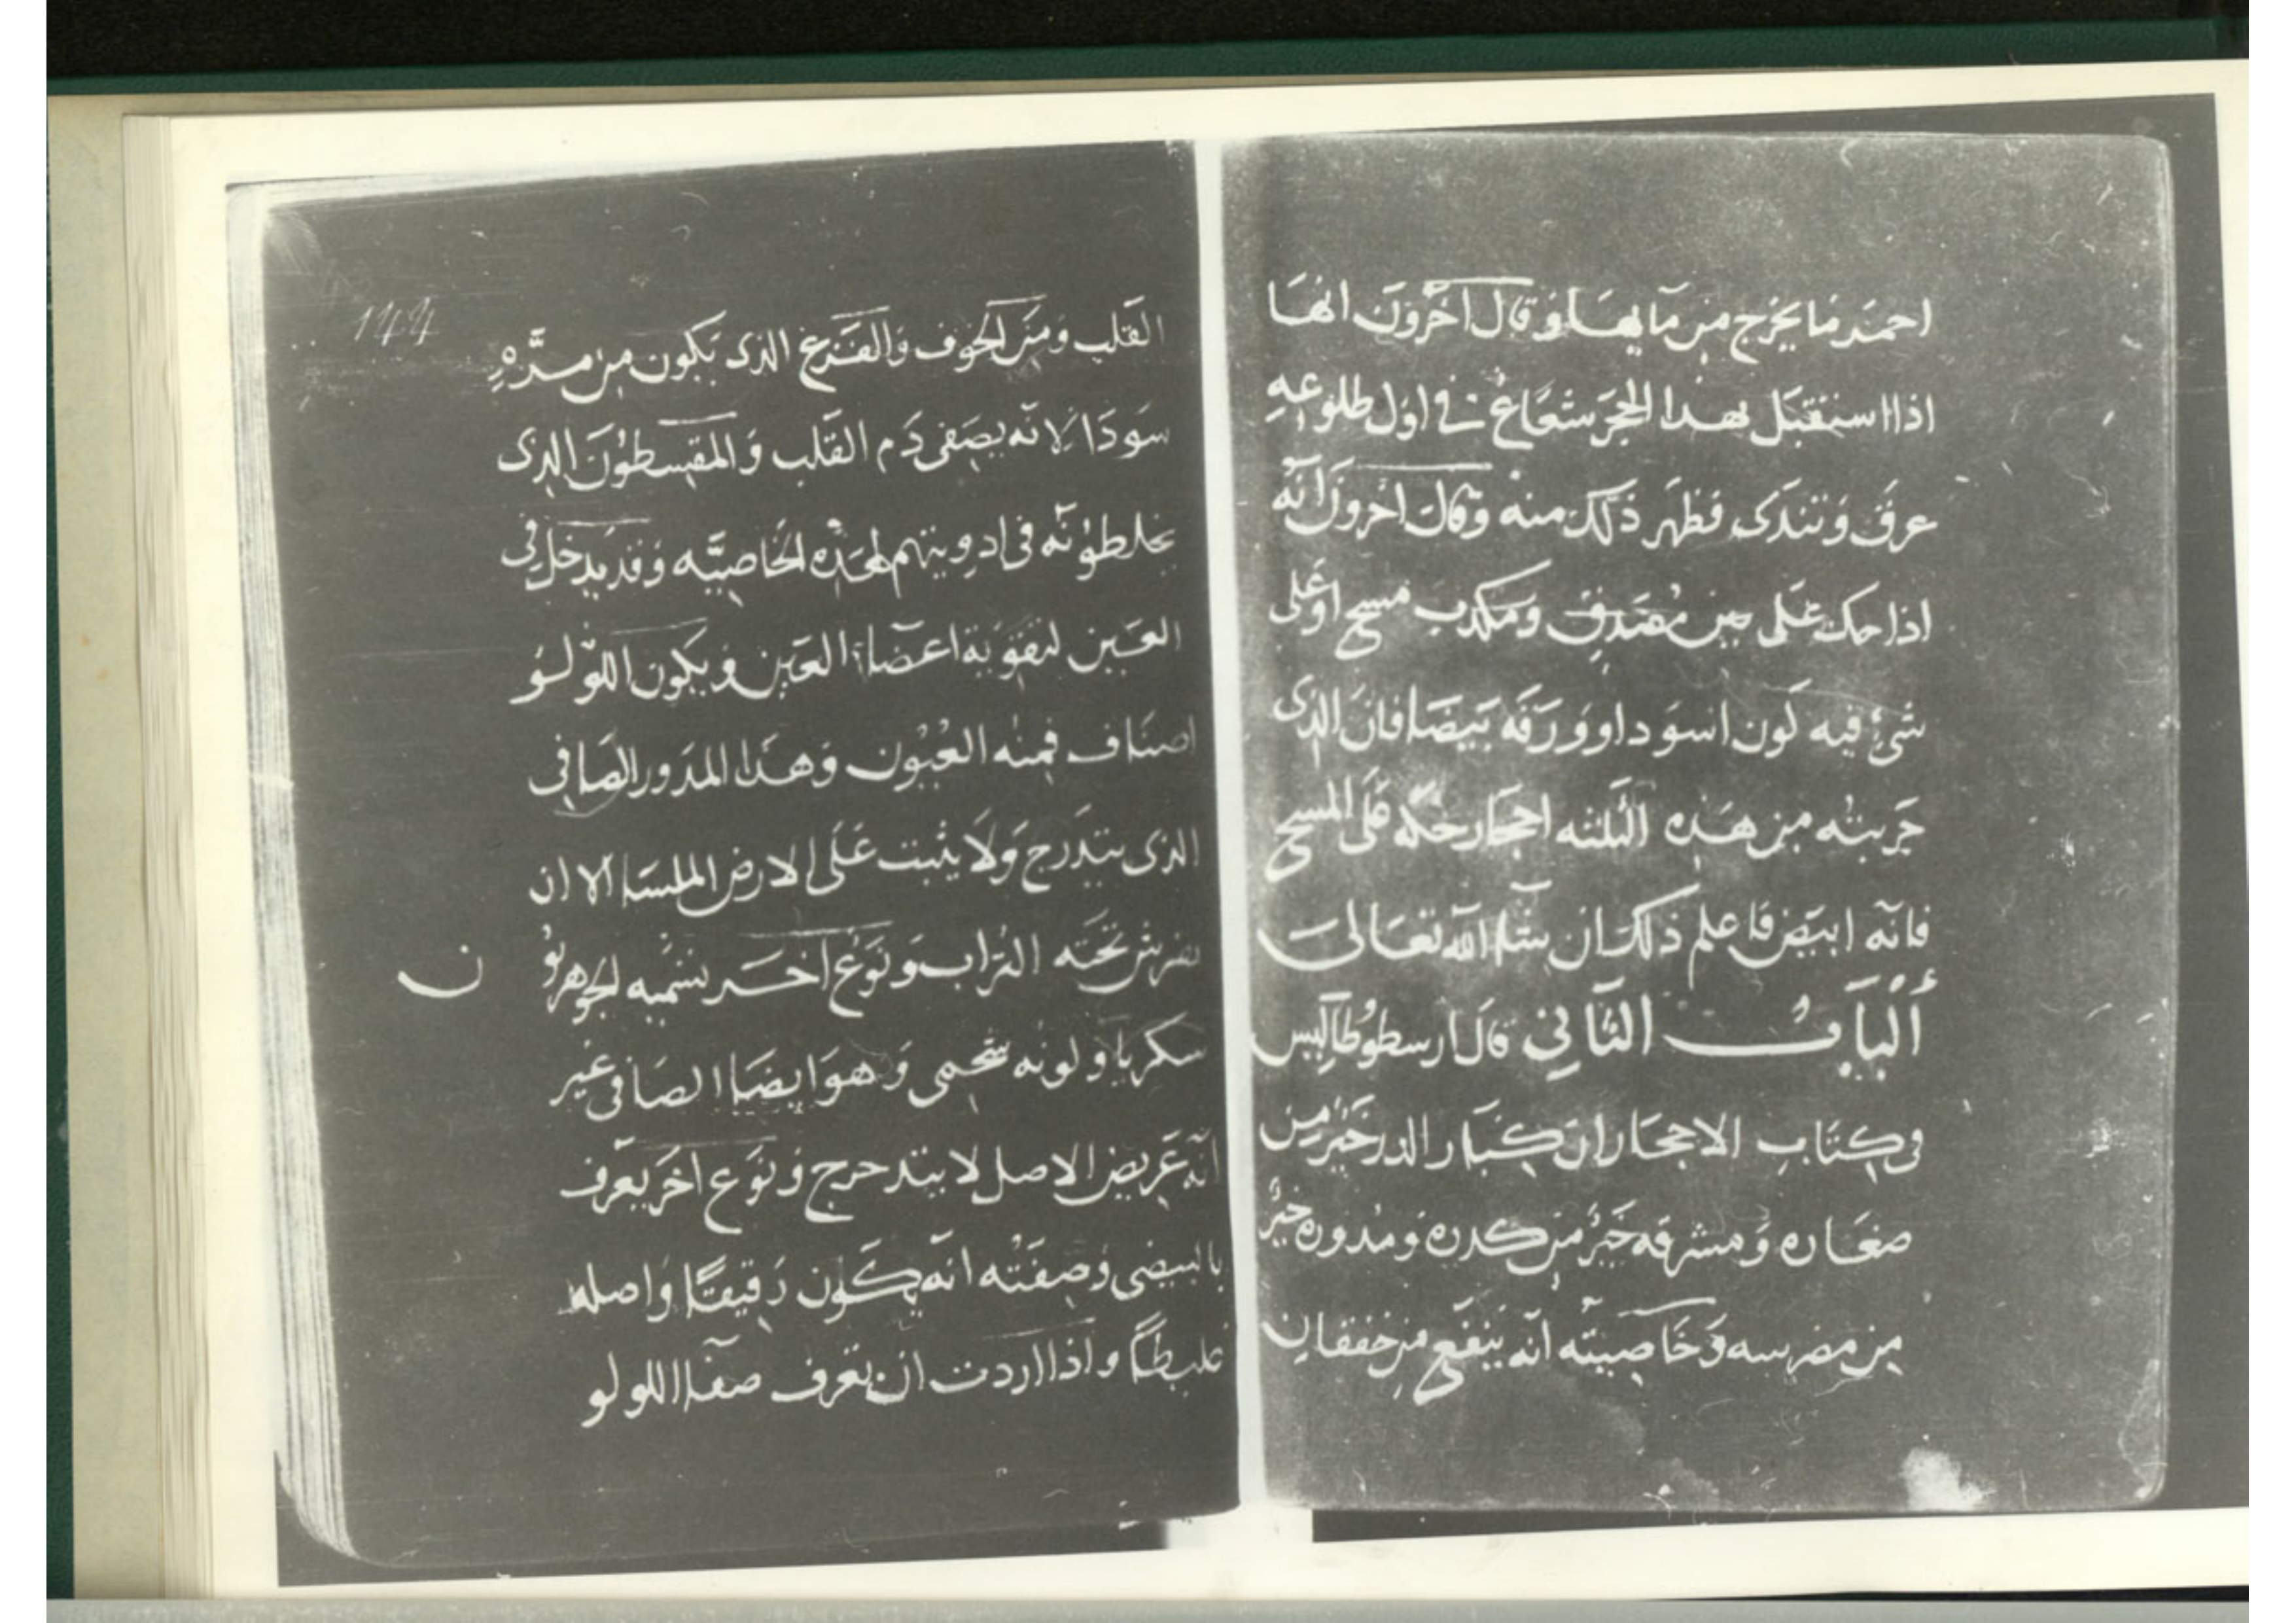 احمد ما يخرج من مآيها وقال آخرون انها
اذا استقبل بهذا الحجر شعاع في اول طلوعه
عرق وتندى فظهر ذلك منه وقال اخرون انه
اذا حك على ومكدب مسح او على
شئ فيه لون اسودا او ورقه بيضا فان الذى
جربته من هذه الثلثه احجار حكه على المسح
فانه ابيض فاعلم ذلك ان شآ الله تعالى
ألباب الثاني قال ارسطوطاليس
فى كتاب الاحجار ان كبار الدر خير من
صغاره ومشرقه خير من كدره ومدوره خير
من مضرسه وخاصيته انه ينفع من خفقان
144
القلب ومن الخوف والفزع الذى يكون من مره
سودا لانه يصفى دم القلب والمقسطون الذى
يخلطونه فى ادويتهم لهذه الخاصيه وقد يدخل فى
العين لتقوية اعضاء العين ويكون اللولو
اصناف فمنه العيون وهذا المدور الصافى
الذى يتدرج ولا يثبت على الارض الملسا الا ان
يفرش تحته التراب ونوع اخر يسميه الجوهريو
ن
سكريا ولونه شحمى وهو ايضا الصافى غير
انه عريض الاصل لا يتدحرج ونوع اخر يعرف
بالبيضى وصفته انه يكون رقيقا واصله
غليظا واذا اردت ان تعرف صفا اللولو